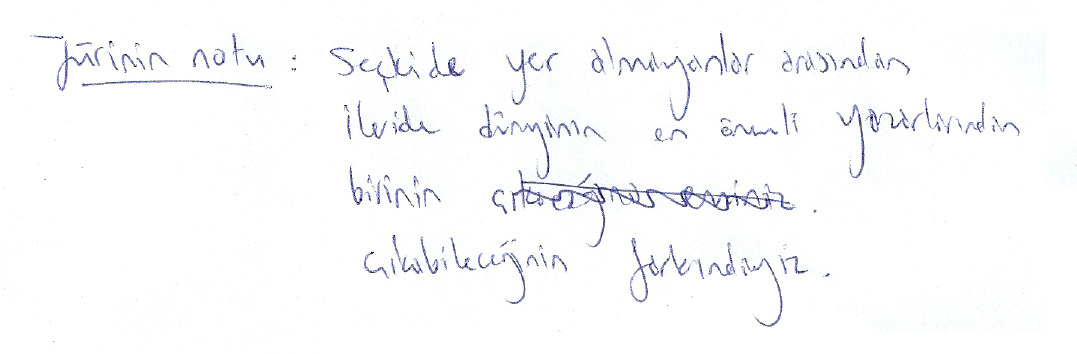 Jürinin notu : Seçkide yer almayanlar arasından
ileride dünyanın en önemli yazarlarından
birinin çıkacağının eminiz.
çıkabileceğinin farkındayız.